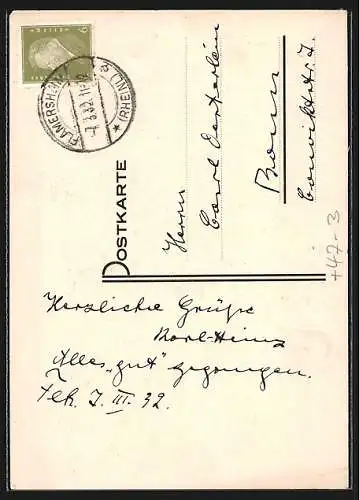 DEUTSCHES REICH
6
FLAMERSHEIM (RHEINL)
-7.3.32.11-12
POSTKARTE
Herrn
Carl
Bonn
Conviktstr. 7.
+47-3
Herzliche Grüße
Karl-Heinz
Alles „gut" gegangen.
7. III. 32.